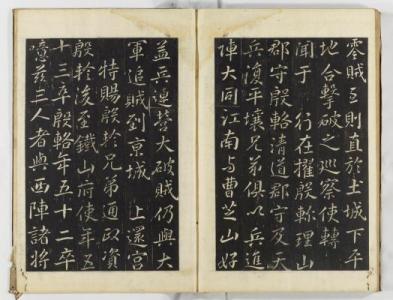 零賊互則直於土城下平
地合擊破之巡察使轉
聞于 行在擢殷軫理山
郡守殷輅清道郡守及天
兵復平壤兄弟俱以兵進
陣大同江南与曹芝山好
益兵連營大破賊仍與大
軍追賊到京城 上還宮
特賜殷於兄弟通政資
殷軫後至鐵山府使年五
十三卒殷輅年五十二卒
噫玆三人者與西陣諸將